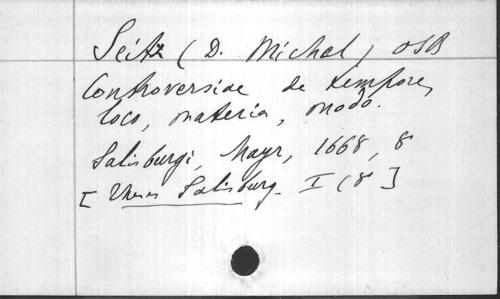 Seitz (D. Michel) OSB
Controversiae de tempore,
loco, materia, modo.
Salisburgi, Mayr, 1668, 8
[ Theses Salisburg. I (8 ]